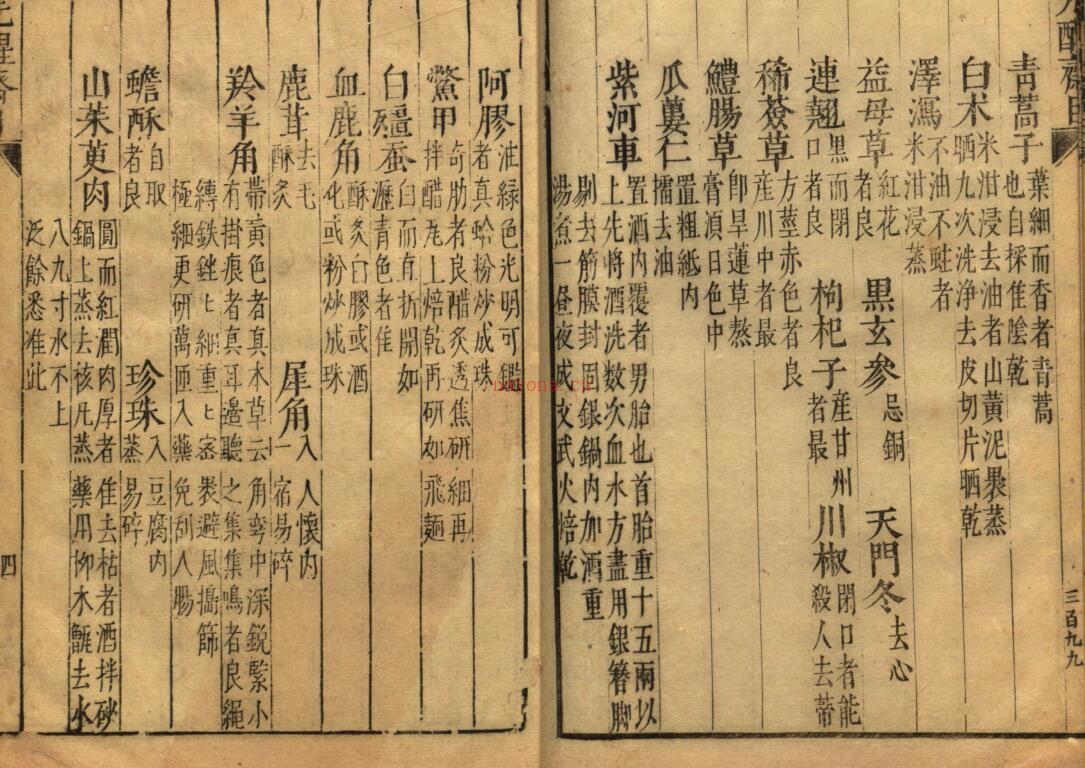 青蒿子葉細而香者青蒿也自採佳陰乾
白朮米泔浸去油者山黃泥裹蒸晒九次洗净去皮切片晒乾
澤瀉不油不蛀者米泔浸蒸
益母草紅花者良 黑玄參忌銅 天門冬去心
連翹黑而閉口者良 枸杞子產甘州者最 川椒閉口者能殺人去蒂
稀薟草方莖赤色者良產川中者最
鱧腸草卽旱蓮草熬膏湏日色中
瓜蔞仁置粗紙內擂去油
紫河車置酒內覆者男胎也首胎重十五兩以上先將酒洗数次血水方盡用銀簪脚
剔去筋膜封固銀鍋內加酒重湯煮一晝夜成文武火焙乾
阿膠油綠色光明可鑑者真蛤粉炒成珠
鱉甲竒肋者良醋炙透焦研細再拌醋瓦上焙乾再研如飛麵
白殭蚕白而直折開如瀝青色者佳
血鹿角酥炙白膠或酒化或粉炒成珠
鹿茸去毛酥炙 犀角入人懷內一宿易碎
羚羊角帶黃色者真本草云角彎中深銳緊小有掛痕者真耳邉聽之集集鳴者良繩
縛鉄銼匕細重匕密裹避風搗篩極細更研萬匝入藥免刮人腸
蟾酥自取者良 珍珠入豆腐內蒸易碎
山茱萸肉圓而紅潤肉厚者佳去枯者酒拌砂鍋上蒸去核凡蒸藥用柳木甑去水
八九寸水不上泛餘悉准此
四
三百九九